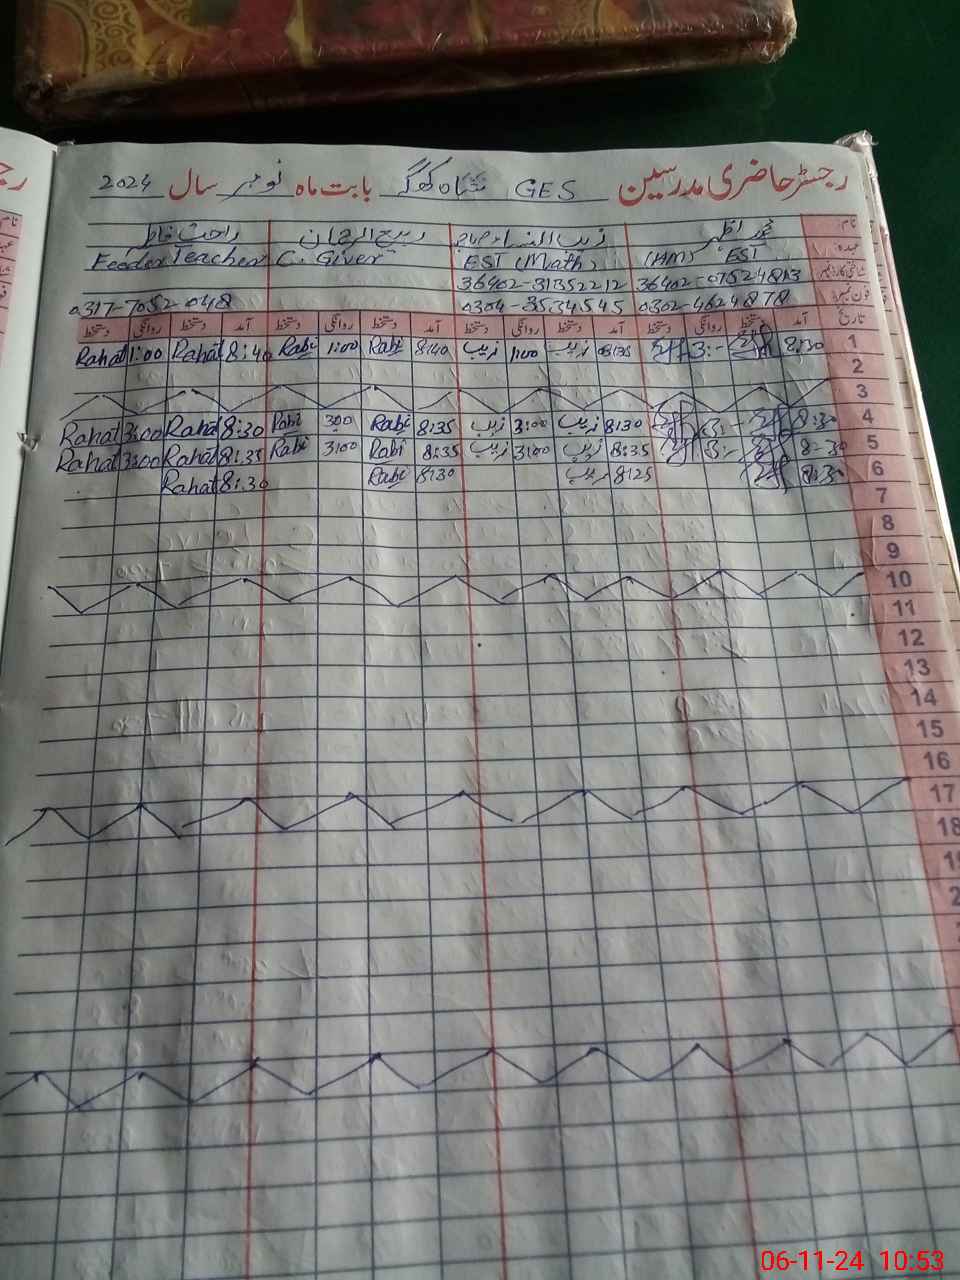 رجسٹر حاضری مدرسین GES شاہ کھگہ بابت ماہ نومبر سال 2024
نام محمد اظہر زیب النساء ربیع الرحمان راحت فاطمہ
عہدہ (HM) EST EST (Math) C. Giver Feeder Teacher
شناختی کارڈ نمبر 36402-0752481-3 36402-3135221-2
فون نمبر 0302-4624878 0304-3534545 0317-7052048
تاریخ آمد دستخط روانگی دستخط آمد دستخط روانگی دستخط آمد دستخط روانگی دستخط آمد دستخط روانگی دستخط
1 8:30 3:- 08:35 زیب 1:00 زیب 8:40 Rabi 1:00 Rabi 8:40 Rahat 1:00 Rahat
2
3
4 8:30 3:- 8:30 زیب 3:00 زیب 8:35 Rabi 300 Rabi 8:30 Rahat 3:00 Rahat
5 8-30 3:- 8:35 زیب 3:00 زیب 8:35 Rabi 3:00 Rabi 8:35 Rahat 3:00 Rahat
6 8:30 8:25 زیب 8:30 Rabi 8:30 Rahat
7
8
9
10
11
12
13
14
15
16
17
18
06-11-24 10:53